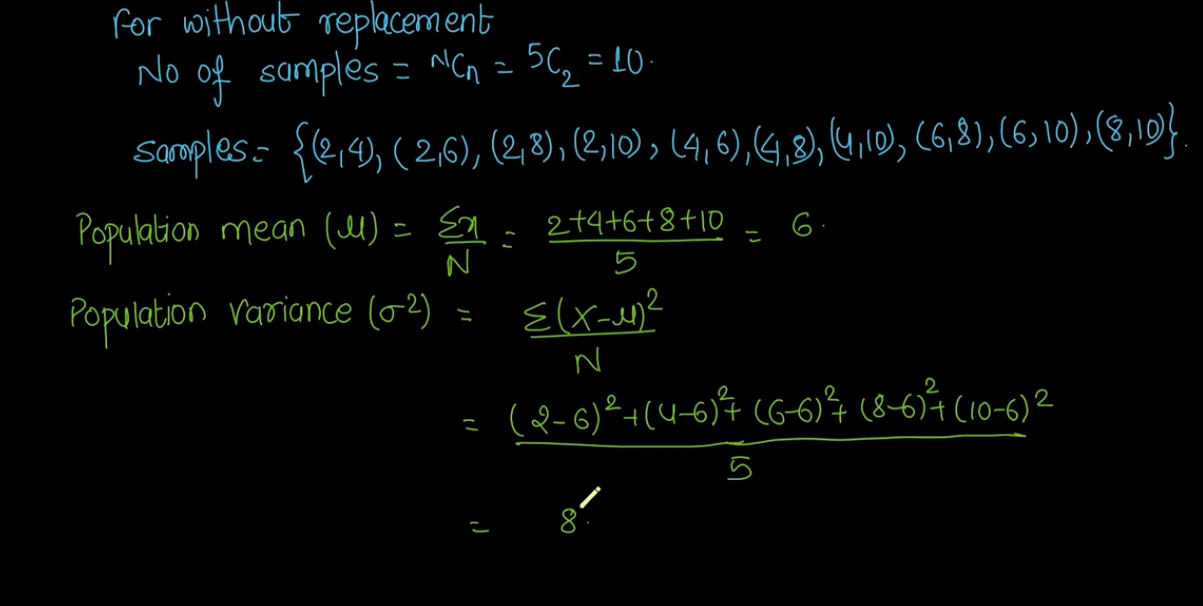 For without replacement
No of samples = ᴺCₙ = 5C₂ = 10.
samples = {(2,4), (2,6), (2,8), (2,10), (4,6), (4,8), (4,10), (6,8), (6,10), (8,10)}.
Population mean (μ) = Σx/N = (2+4+6+8+10)/5 = 6.
Population variance (σ²) = Σ(X-μ)²/N
= ((2-6)²+(4-6)²+(6-6)²+(8-6)²+(10-6)²)/5
= 8.